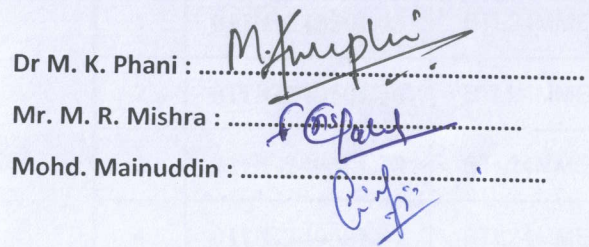 Dr M. K. Phani : ............................................................
Mr. M. R. Mishra : ...............................................
Mohd. Mainuddin : ...............................................